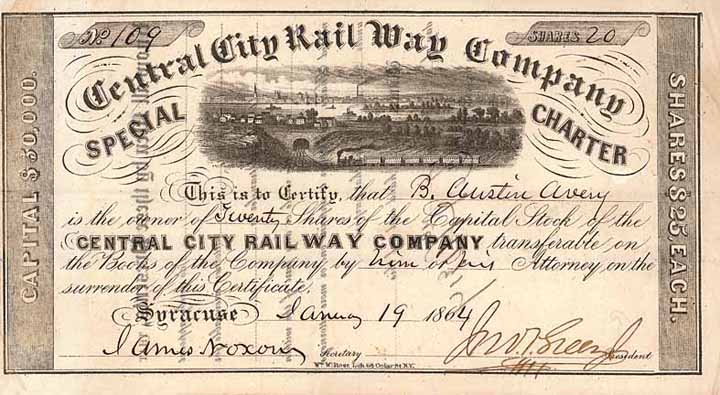 No. 109
SHARES 20
Central City Rail Way Company
SPECIAL CHARTER
CAPITAL $ 50,000.
SHARES $ 25, EACH.
This is to Certify, that B. Austin Avery
is the owner of Twenty Shares of the Capital Stock of the
CENTRAL CITY RAIL WAY COMPANY, transferable on
the Books of the Company by him or his Attorney on the
surrender of this Certificate.
Syracuse January 19 1864
James Noxon Secretary
President